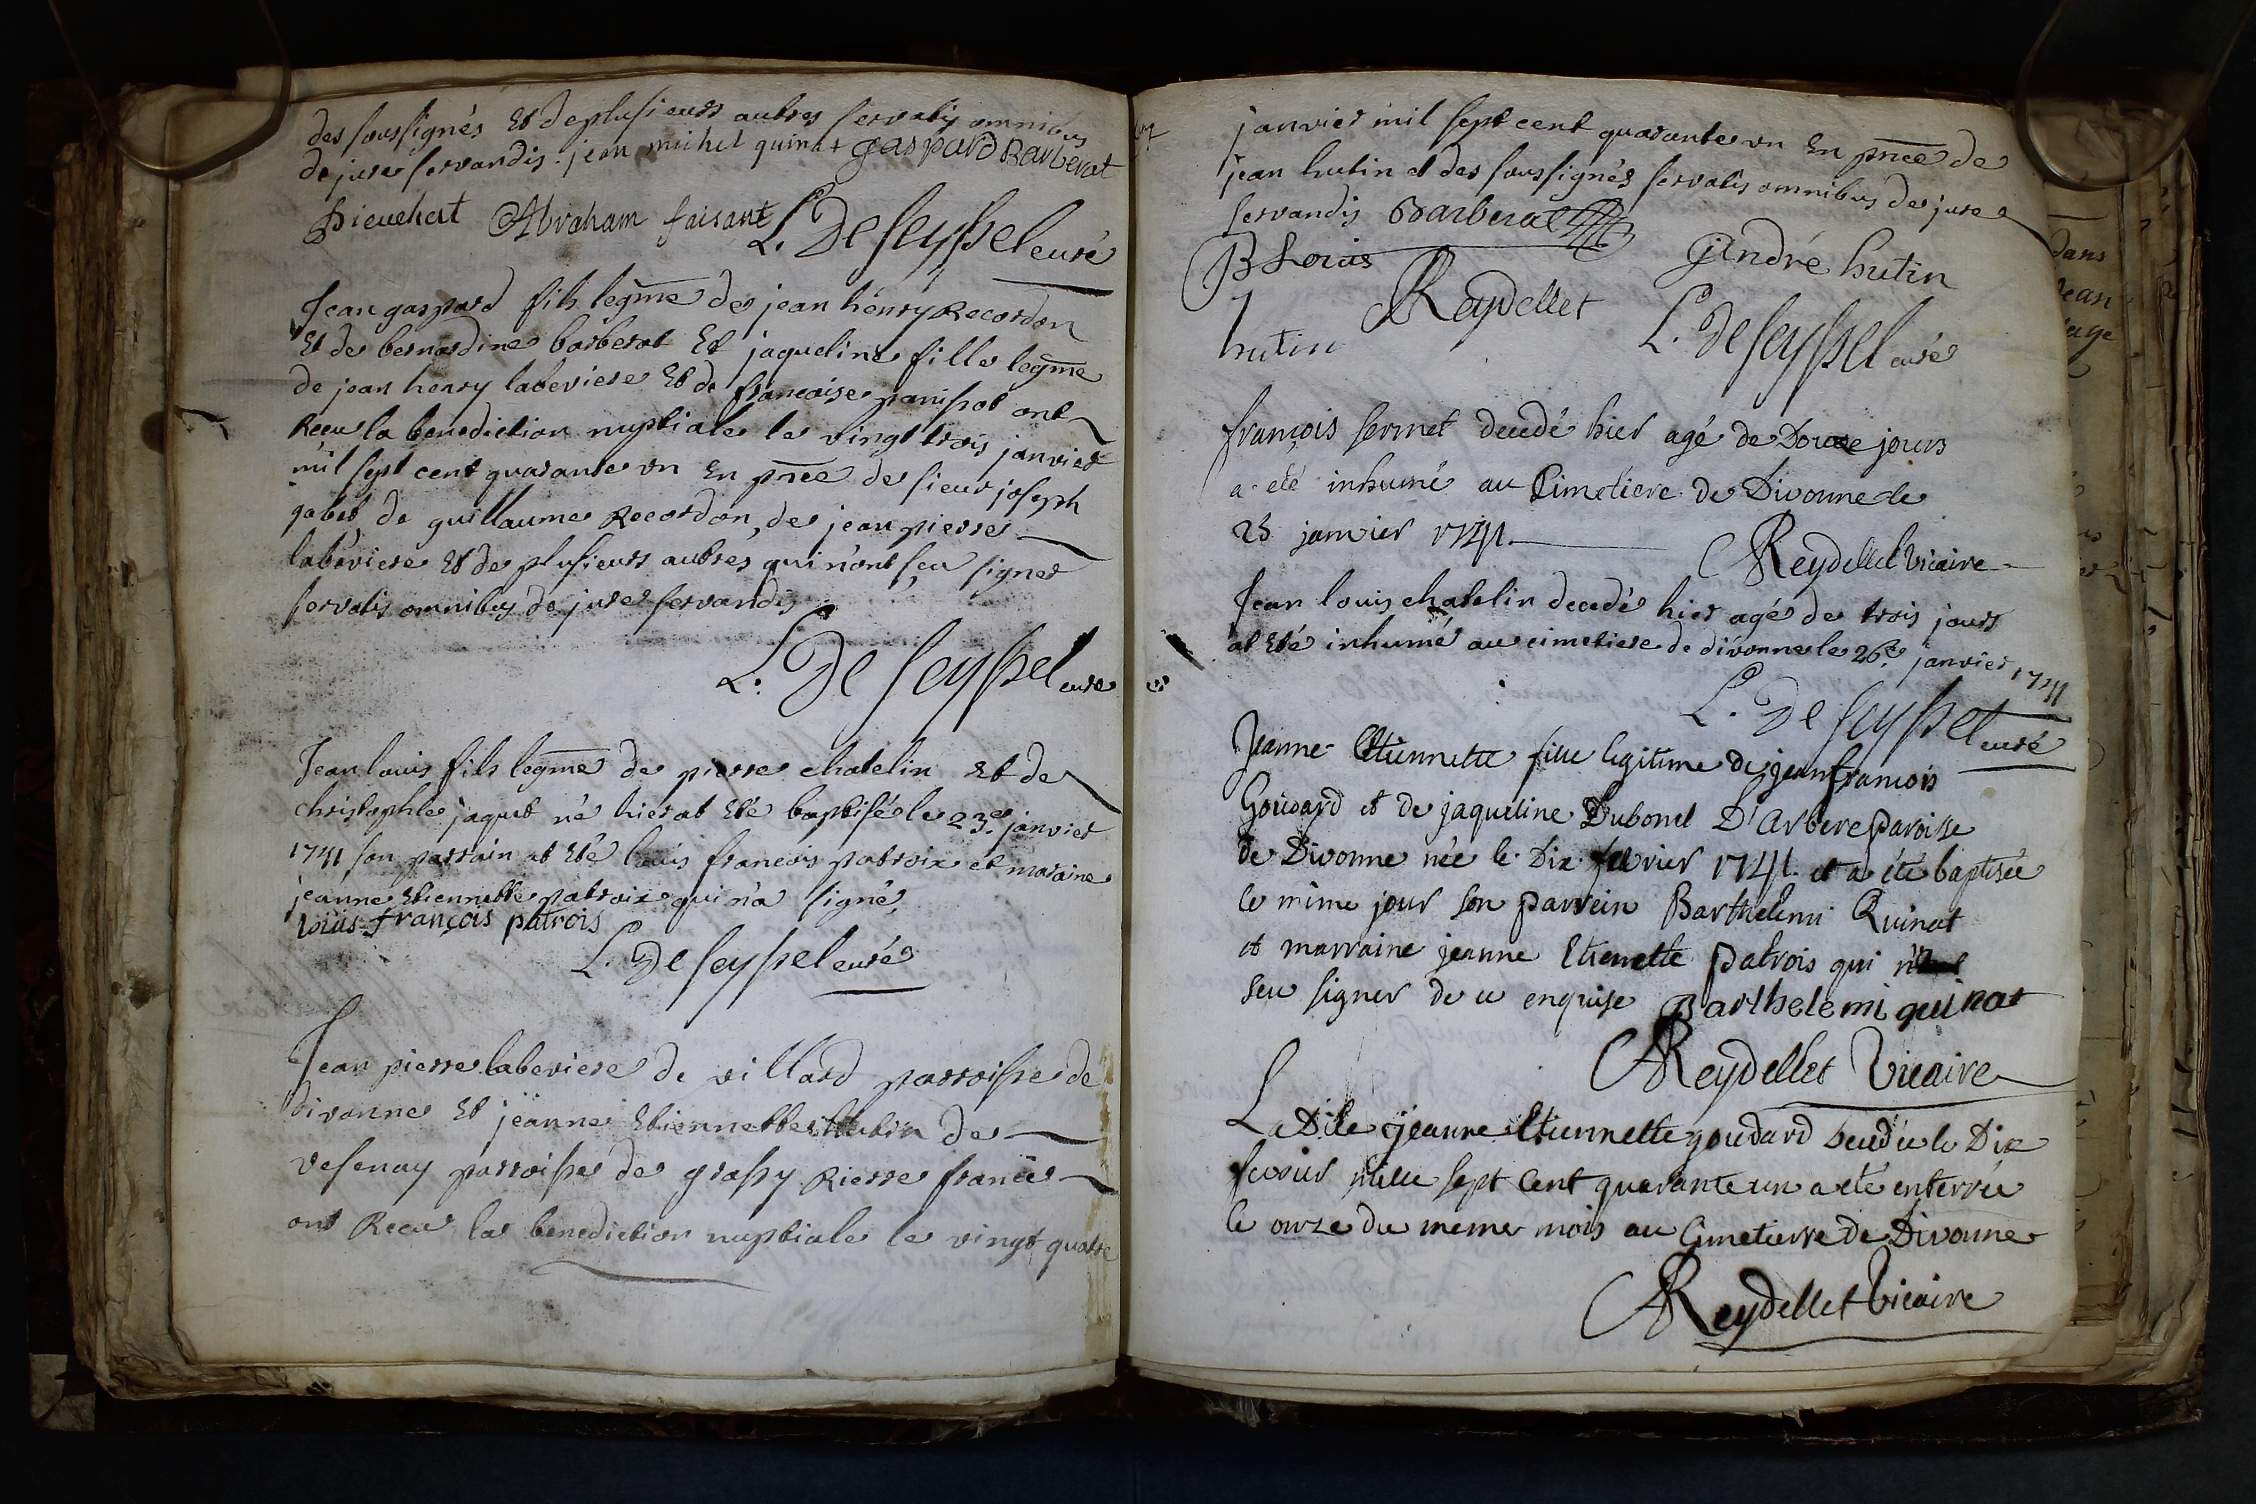 des soussignés Et de plusieurs autres servatis omnibus
de jure servandis. jean michel quinat gaspard Barberat
Pieuchert Abraham faisant L. De Seyssel curé
Jean gaspard fils legme de jean henry Recordon
Et de bernardine barberat Et jaqueline fille legme
de jean henry labeviere Et de francoise panissot ont
Receu la benediction nuptiale le vingt trois janvier
mil sept cent quarante un En pnce de sieur joseph
gabet de guillaume Recordon, de jean pierre
labéviere Et de plusieurs autres qui n'ont sçeu signer
servatis omnibus de jure servandis
L. De Seyssel curé
Jean louis fils legme de pierre chatelin Et de
christophle jaquet né hier at Eté baptisé le 23e janvier
1741 son parrain at Eté louis francois patroix et maraine
jeanne Etiennette patroix qui n'a signé
louis françois patrois
L. De Seyssel curé
Jean pierre labeviere de villard parroisse de
divonne Et jeanne Etiennette hutin de
vesenay parroisse de grassy Rierre france
ont Receu la benediction nuptiale le vingt quatre
janvier mil sept cent quarante un En pnce de
jean hutin et des soussignés servatis omnibus de jure
servandis Barberat
B Louis andré hutin
J Reydellet L. De Seyssel curé
hutin
françois sermet decedé hier agé de Douze jours
a été inhumé au Cimetiere de Divonne le
25 janvier 1741.
Reydellet Vicaire
Jean louis chatelin decedé hier agé de trois jours
at Eté inhumé au cimetiere de divonne le 26e janvier 1741
L. De Seyssel curé
Jeanne Etiennette fille legitime de jean francois
Goudard et de jaqueline Dubonel D'Arbere paroisse
de Divonne née le Dix fevrier 1741. et a été baptisée
le même jour son parrein Barthelemi Quinat
et marraine jeanne Etienette patrois qui n'a
seu signer de ce enquise Barthelemi quinat
Reydellet Vicaire
La Dite jeanne Etiennette goudard decedée le Dix
fevrier mille sept Cent quarante un a eté enterrée
le onze du meme mois au Cimetierre de Divonne
Reydellet Vicaire
dans
jean